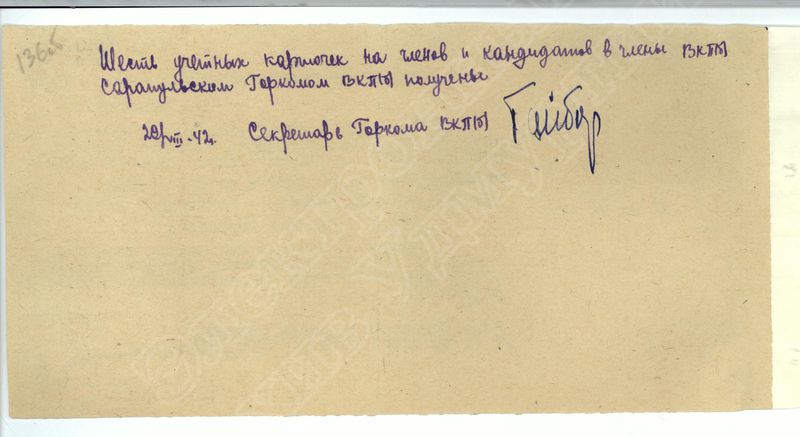 136об
Шесть учетных карточек на членов и кандидатов в члены ВКП(б)
Сарапульским Горкомом ВКП(б) получены
29/VIII-42г. Секретарь Горкома ВКП(б)
Электронный
архив Удмуртии